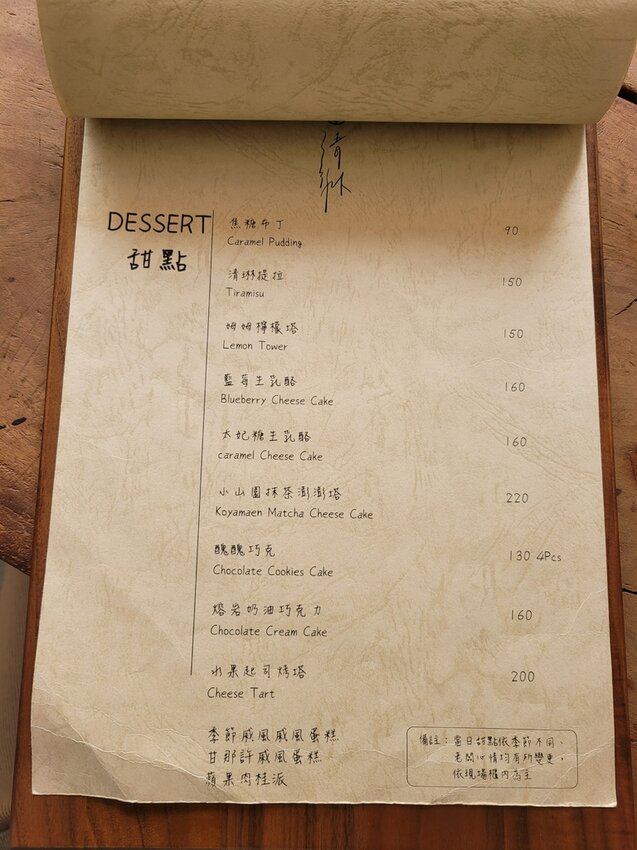 DESSERT
甜點
焦糖布丁
Caramel Pudding
90
清琳提拉
Tiramisu
150
姆姆檸檬塔
Lemon Tower
150
藍莓生乳酪
Blueberry Cheese Cake
160
太妃糖生乳酪
caramel Cheese Cake
160
小山園抹茶澎澎塔
Koyamaen Matcha Cheese Cake
220
醜醜巧克
Chocolate Cookies Cake
130 4Pcs
熔岩奶油巧克力
Chocolate Cream Cake
160
水果起司烤塔
Cheese Tart
200
季節戚風戚風蛋糕
甘那許戚風蛋糕
蘋果肉桂派
備註：當日甜點依季節不同、
老闆心情均有所變更，
依現場櫃內為主